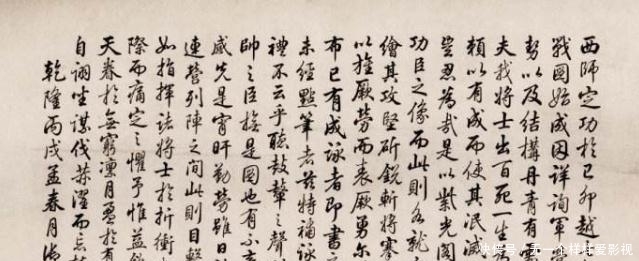 西師定功於己卯越
戰圖始成因詳詢軍
勢以及結構丹青有
夫我將士出百死一生
賴以有成而使其泯滅
豈忍為哉是以紫光閣
功臣之像而此則各就
繪其攻堅斫銳斬將搴
以旌厥勞而表厥勇尔
布已有成詠者即書
未經點筆者茲特補詠
禮不云乎聽鼓鼙之聲
帥之臣於是圖也有不
感先是宵旰勤勞雖日
連營列陣之間此則目擊
如指揮諸將士於折衝
際而痛定之懼予惟益欽
天眷於無窮凜月盈於有
自詡坐謀伐濯而忘
乾隆丙戌孟春月御
快资讯